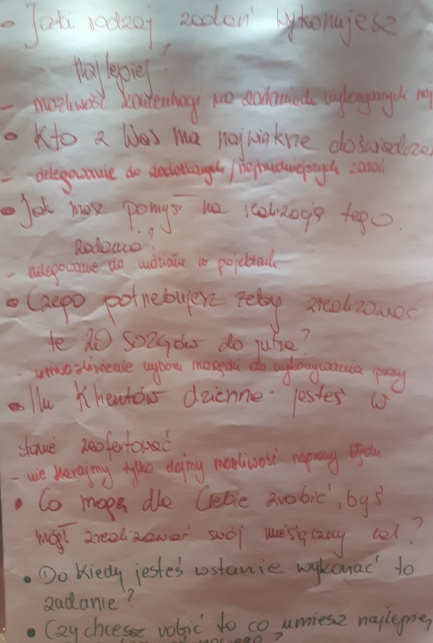 • Jaki rodzaj zadań wykonujesz
najlepiej?
- możliwość koncentracji na zadaniach wykonywanych naj
• Kto z Was ma największe doświadcze
- delegowanie do dodatkowych/najtrudniejszych zadań
• Jaki masz pomysł na realizację tego
zadania?
- delegowanie do udziału w projektach
• Czego potrzebujesz żeby zrealizować
te 20 do jutra?
- umożliwienie wyboru narzędzi do wykonywania pracy
• Ilu Klientów dziennie jesteś w
stanie zaofertować
- nie karajmy tylko dajmy możliwość naprawy błędu
• Co mogę dla Ciebie zrobić, byś
mógł zrealizować swój miesięczny cel?
• Do kiedy jesteś wstanie wykonać to
zadanie?
• Czy chcesz robić to co umiesz najlepiej